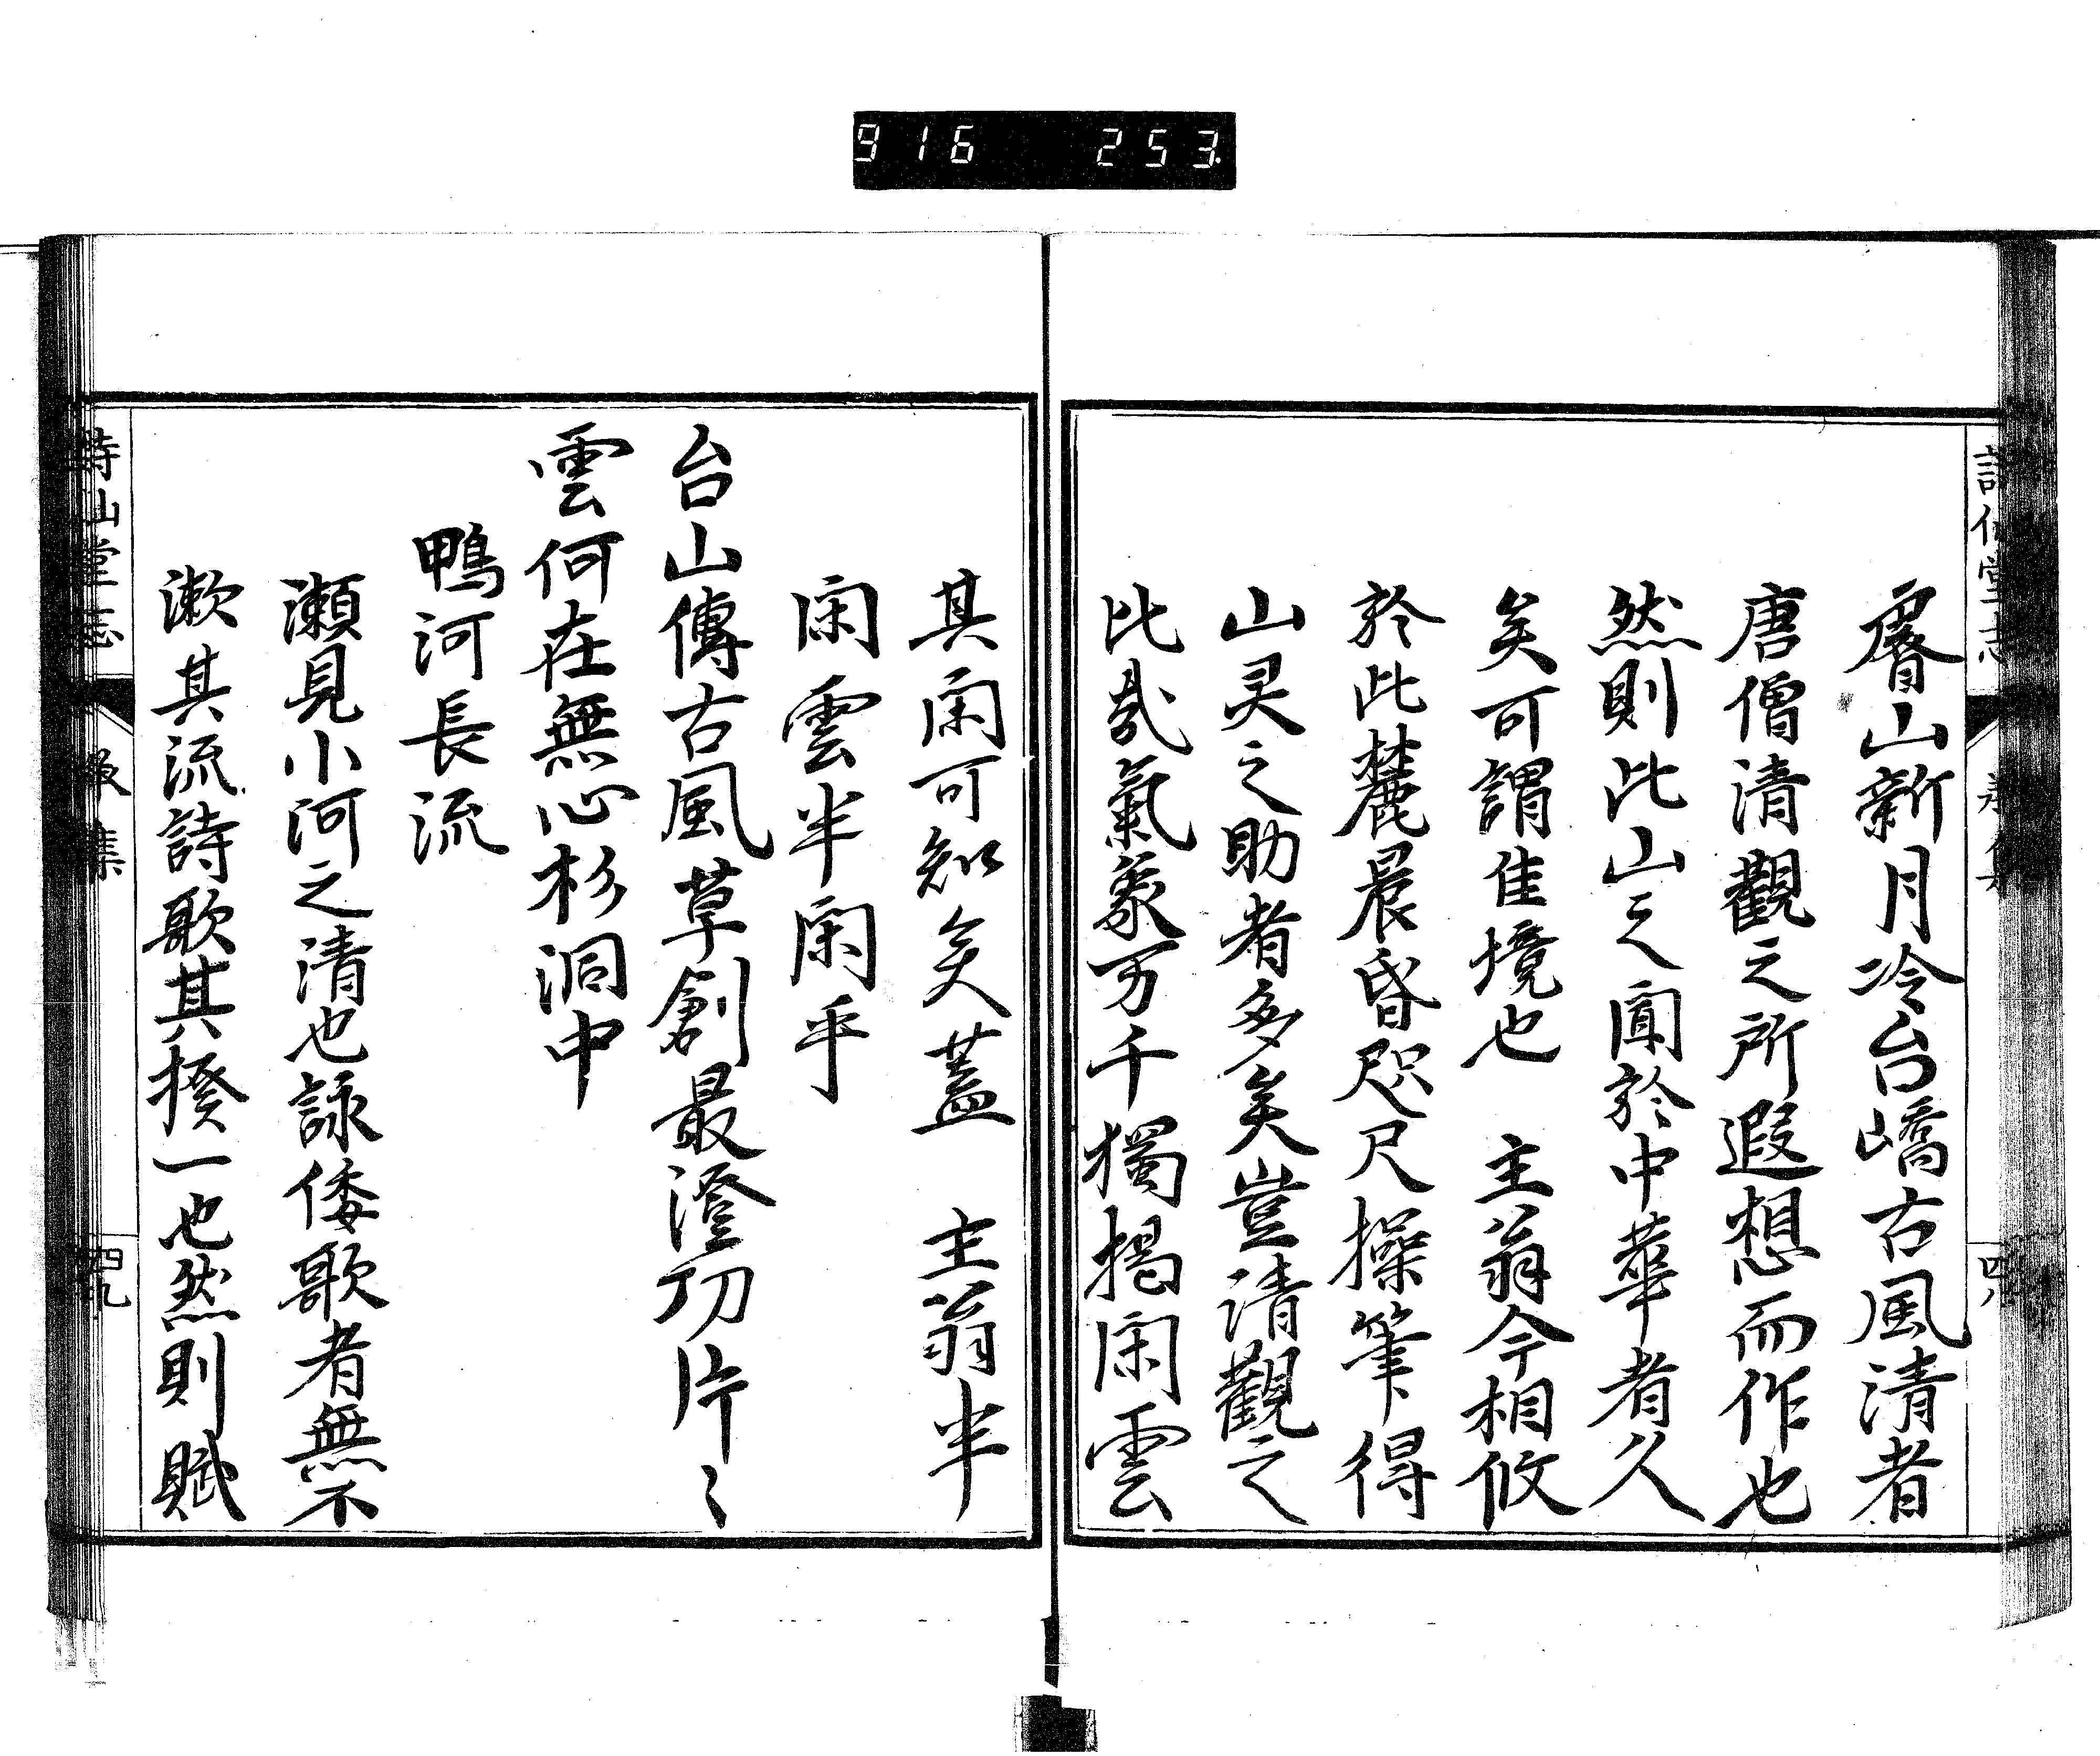 916 253.
睿山新月冷台嶠古風清者
唐僧清觀之所遐想而作也
然則此山之聞於中華者久
矣可謂佳境也 主翁今相攸
於此麓晨昏咫尺操筆得
山灵之助者多矣豈清觀之
比哉氣象万千獨揭閑雲
其閑可知矣蓋 主翁半
閑雲半閑乎
台山傳古風草創最澄功片〻
雲何在無心杉洞中
鴨河長流
瀬見小河之清也詠倭歌者無不
漱其流詩歌其揆一也然則賦
詩仙堂志
四九